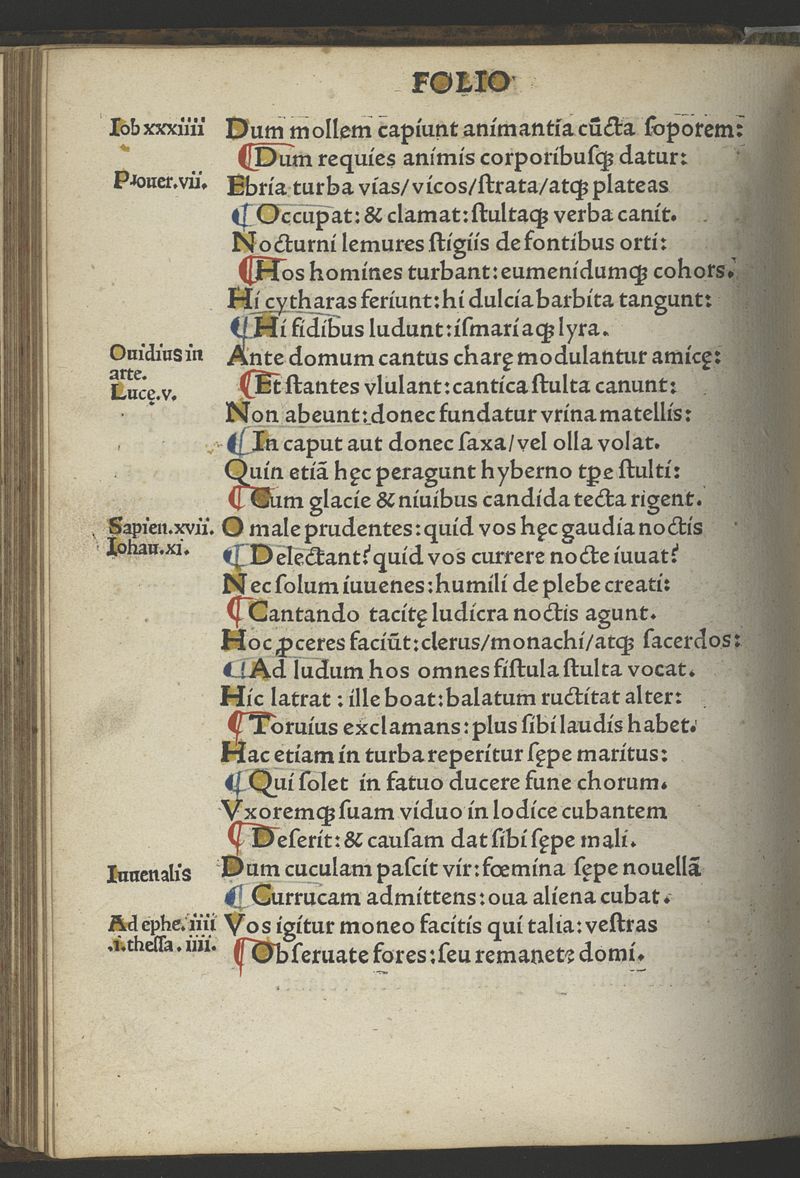 FOLIO
Iob xxxiiii
Dum mollem capiunt animantia cūcta ſoporem:
¶Dum requies animis corporibuſqꝫ datur:
Prouer.vii.
Ebria turba vias/vicos/ſtrata/atqꝫ plateas
¶Occupat: & clamat: ſtultaqꝫ verba canit.
Nocturni lemures ſtigiis de fontibus orti:
¶Hos homines turbant: eumenidumqꝫ cohors.
Hi cytharas feriunt: hi dulcia barbita tangunt:
¶Hi fidibus ludunt: iſmariaqꝫ lyra.
Ouidius in
arte.
Lucę.v.
Ante domum cantus charę modulantur amicę:
¶Et ſtantes vlulant: cantica ſtulta canunt:
Non abeunt: donec fundatur vrina matellis:
¶In caput aut donec ſaxa/vel olla volat.
Quin etiā hęc peragunt hyberno tp̄e ſtulti:
¶Cum glacie & niuibus candida tecta rigent.
Sapien.xvii.
Iohan.xi.
O male prudentes: quid vos hęc gaudia noctis
¶Delectant? quid vos currere nocte iuuat?
Nec ſolum iuuenes: humili de plebe creati:
¶Cantando tacitę ludicra noctis agunt.
Hoc ꝓceres faciūt: clerus/monachi/atqꝫ ſacerdos:
¶Ad ludum hos omnes fiſtula ſtulta vocat.
Hic latrat: ille boat: balatum ructitat alter:
¶Toruius exclamans: plus ſibi laudis habet.
Hac etiam in turba reperitur ſępe maritus:
¶Qui ſolet in fatuo ducere fune chorum.
Vxoremqꝫ ſuam viduo in lodice cubantem
¶Deſerit: & cauſam dat ſibi ſępe mali.
Iuuenalis
Dum cuculam paſcit vir: fœmina ſępe nouellā
¶Currucam admittens: oua aliena cubat.
Ad ephe.iiii
.i.theſſa.iiii.
Vos igitur moneo facitis qui talia: veſtras
¶Obſeruate fores: ſeu remanete domi.